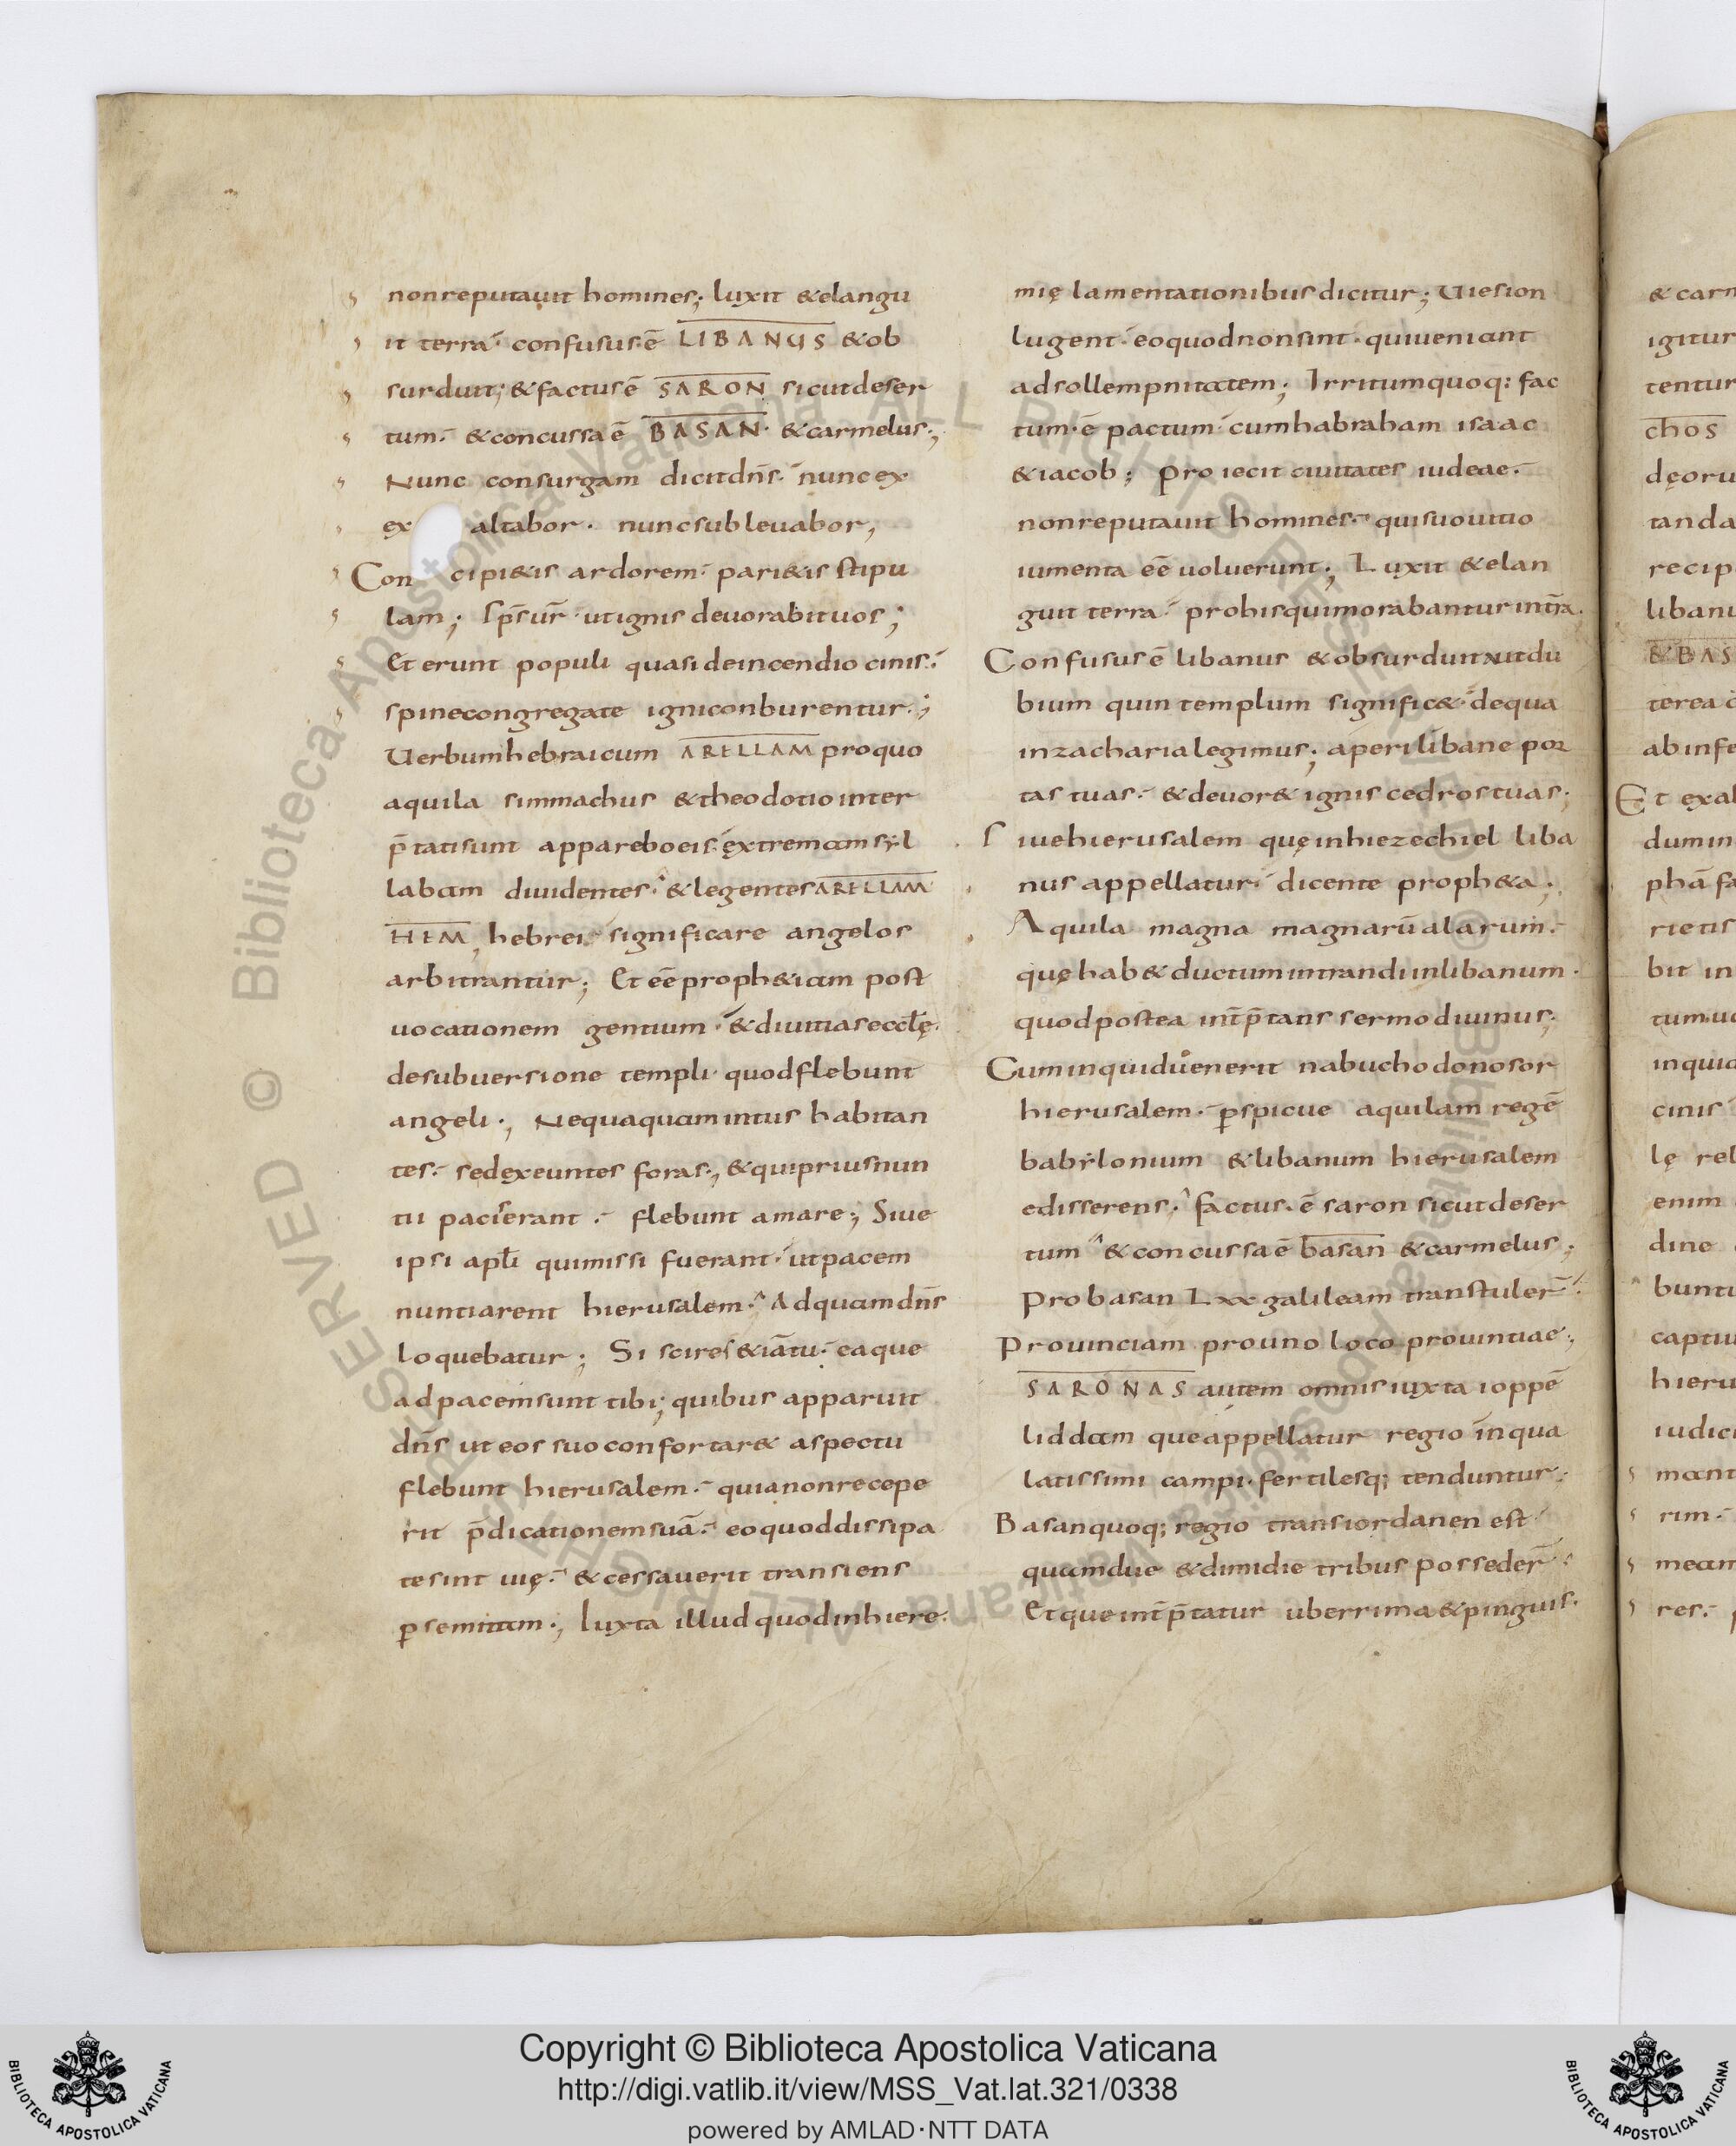 non reputauit homines; luxit & elangu
it terra· confusus ē LIBANUS & ob
surduit; & factus ē SARON sicut deser
tum· & concussa ē BASAN· & carmelus;
Nunc consurgam dicit dn̄s· nunc ex
ex altabor· nunc subleuabor,
Concipi&is ardorem· pari&is stipu
lam; sp̄s ur̄· ut ignis deuorabit uos;
Et erunt populi quasi de incendio cinis·
spine congregate igni conburentur·;
Uerbum hebraicum ARELLAM pro quo
aquila simmachus & theodotio inter
p̄tati sunt apparebo eis· ęxtremam syl
labam diuidentes· & legentes ARELLAM
HEM, hebrei significare angelos
arbitrantur; Et eē proph&iam post
uocationem gentium· & diuitias eccl̄ę·
de subuersione templi· quod flebunt
angeli·, Nequaquam intus habitan
tes· sed exeuntes foras·, & qui prius nun
tii pacis erant·- flebunt amare·, Siue
ipsi apl̄i qui missi fuerant· ut pacem
nuntiarent hierusalem· Ad quam dn̄s
loquebatur; Si scires & iā tu· ea que
ad pacem sunt tibi; quibus apparuit
dn̄s ut eos suo confortar& aspectu
flebunt hierusalem·- quia non recepe
rit p̄dicationem suā·- eo quod dissipa
te sint uię· & cessauerit transiens
ꝑ semitam·, Iuxta illud quod in hiere·
mię lamentationibus dicitur; Uie sion
lugent· eo quod non sint· qui ueniant
ad sollempnitatem; Irritum quoq: fac
tum· ē pactum· cum habraham isaac
& iacob; Proiecit ciuitates iudeae·-
non reputauit homines· qui suo uitio
iumenta eē uoluerunt·, Luxit & elan
guit terra· pro his qui morabantur in tr̄a·
Confusus ē libanus & obsurduit nut du
bium quin templum signific&· de qua
in zacharia legimus; aperi libane por
tas tuas·- & deuor& ignis cedros tuas;
Siue hierusalem quę in hiezechiel liba
nus appellatur· dicente proph&a;
Aquila magna magnarū alarum·-
quę hab& ductum intrandi in libanum·
quod postea int̄p̄tans sermo diuinus;
Cum inquid uenerit nabuchodonosor
hierusalem·- ꝑspicue aquilam regē
babylonium & libanum hierusalem
edisserens· factus· ē saron sicut deser
tum & concussa ē basan & carmelus;
Pro basan Lxx galileam transtuler̄·
Prouinciam pro uno loco prouintiae·,
SARONAS autem omnis iuxta ioppē
liddam que appellatur regio in qua
latissimi campi· fertilesq; tenduntur·
Basan quoq; regio trans iordanen est
quam due & dimidie tribus posseder̄·
Et que int̄p̄tatur uberrima & pinguis·
Copyright © Biblioteca Apostolica Vaticana
http://digi.vatlib.it/view/MSS_Vat.lat.321/0338
powered by AMLAD·NTT DATA
BIBLIOTECA APOSTOLICA VATICANA
BIBLIOTECA APOSTOLICA VATICANA